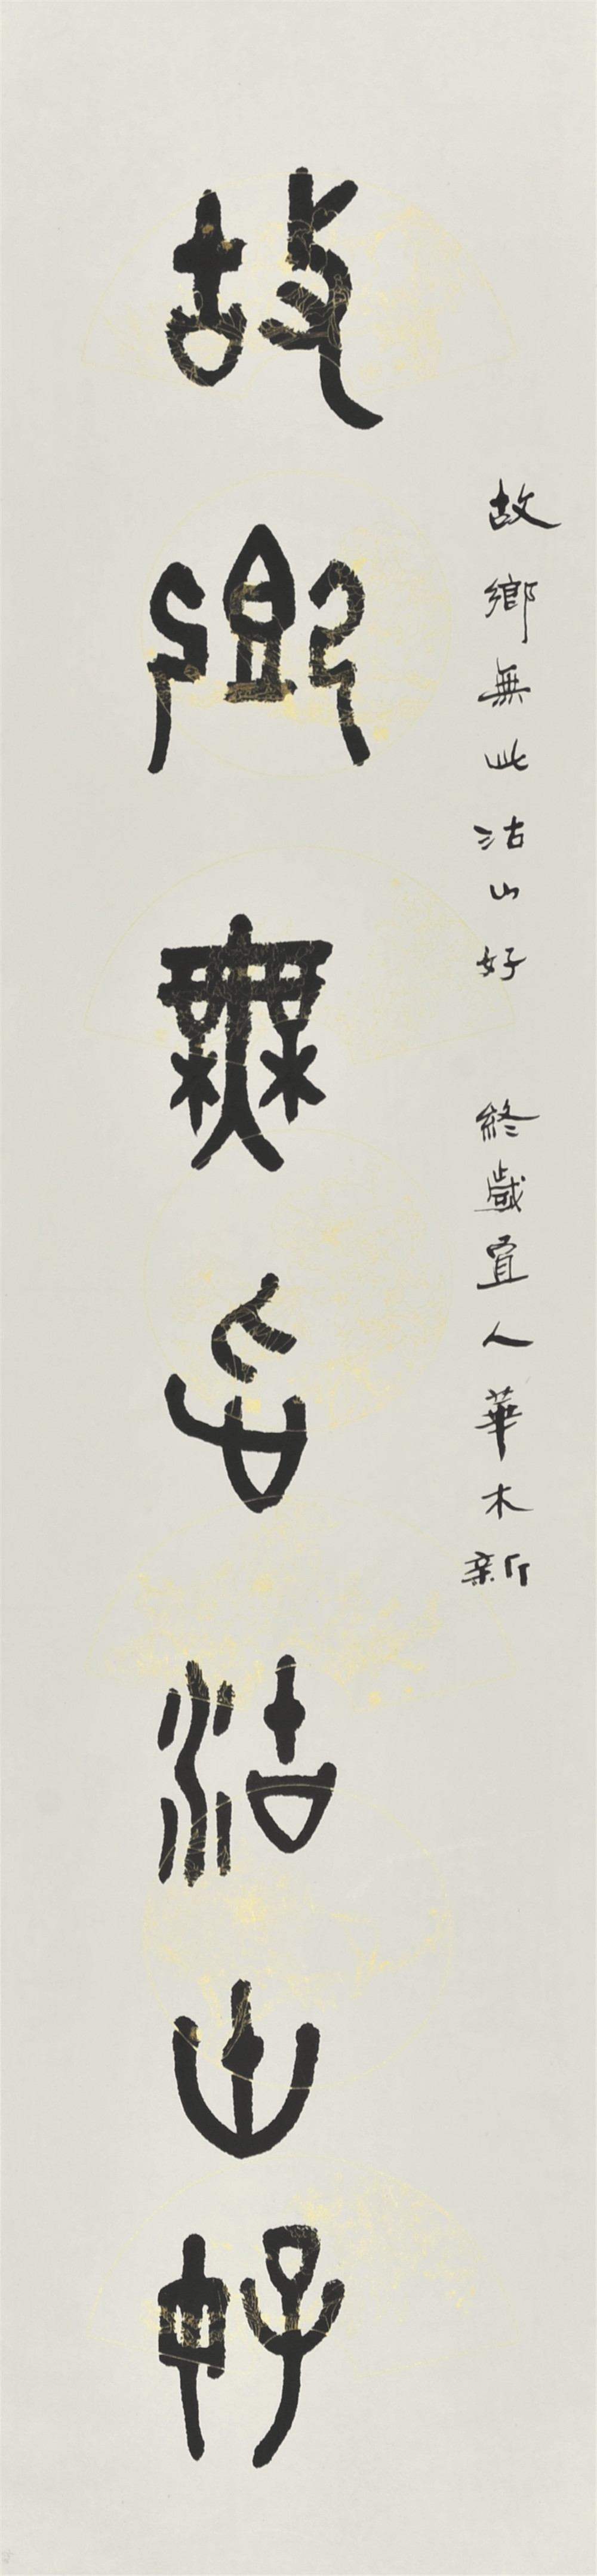 故鄉無此沽山好 終歲宜人華木新
故鄉無此沽山好